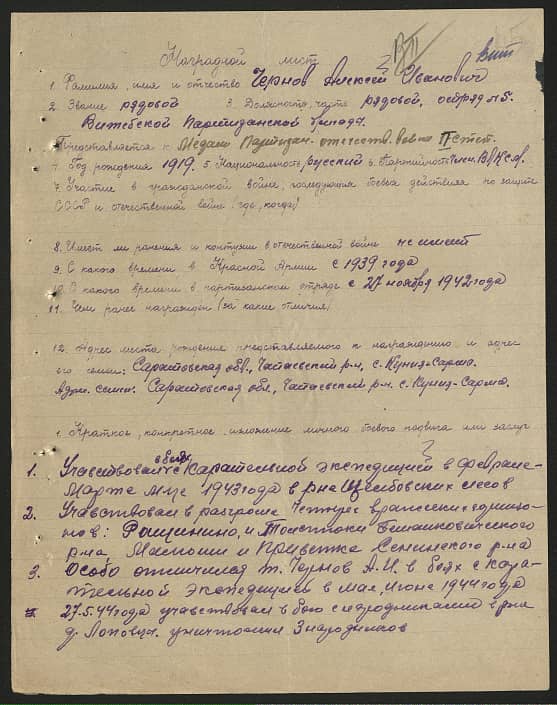 Наградной лист
1. Фамилия, имя и отчество Чернов Алексей Иванович
2. Звание рядовой 3. Должность, часть рядовой, отряд №5.
Витебской Партизанской бригады
Представляется к Медали Партизан. отечеств. войны II степ.
4. Год рождения 1919. 5. Национальность русский 6. Партийность член ВЛКСМ.
7. Участие в гражданской войне, последующих боевых действиях по защите
СССР и отечественной войне (где, когда)
8. Имеет ли ранения и контузии в отечественной войне не имеет
9. С какого времени в Красной Армии с 1939 года
10. С какого времени в партизанском отряде с 27 ноября 1942 года
11. Чем ранее награжден (за какие отличия)
12. Адрес места рождения представляемого к награждению и адрес
его семьи: Саратовская обл., Чапаевский р-н, с. Куниц-Сарма.
Адрес. семьи. Саратовская обл., Чапаевский р-н. с. Куниц-Сарма.
1. Краткое, конкретное изложение личного боевого подвига или заслуг
1. Участвовал в боях с карательной экспедицией в феврале-
Марте м-це 1943 года в р-не Щелбовских лесов
2. Участвовал в разгроме четырех вражеских гарнизо-
нов: и Толстоки Бешанковичского
р-на, и Приветка Сенинского р-на
3. Особо отличился т. Чернов А.И. в боях с кара-
тельной экспедицией в мае, июне 1944 года
27.5.44 года участвовал в бою с народниками в р-не
д. Поповцы. уничтожил 3 народников